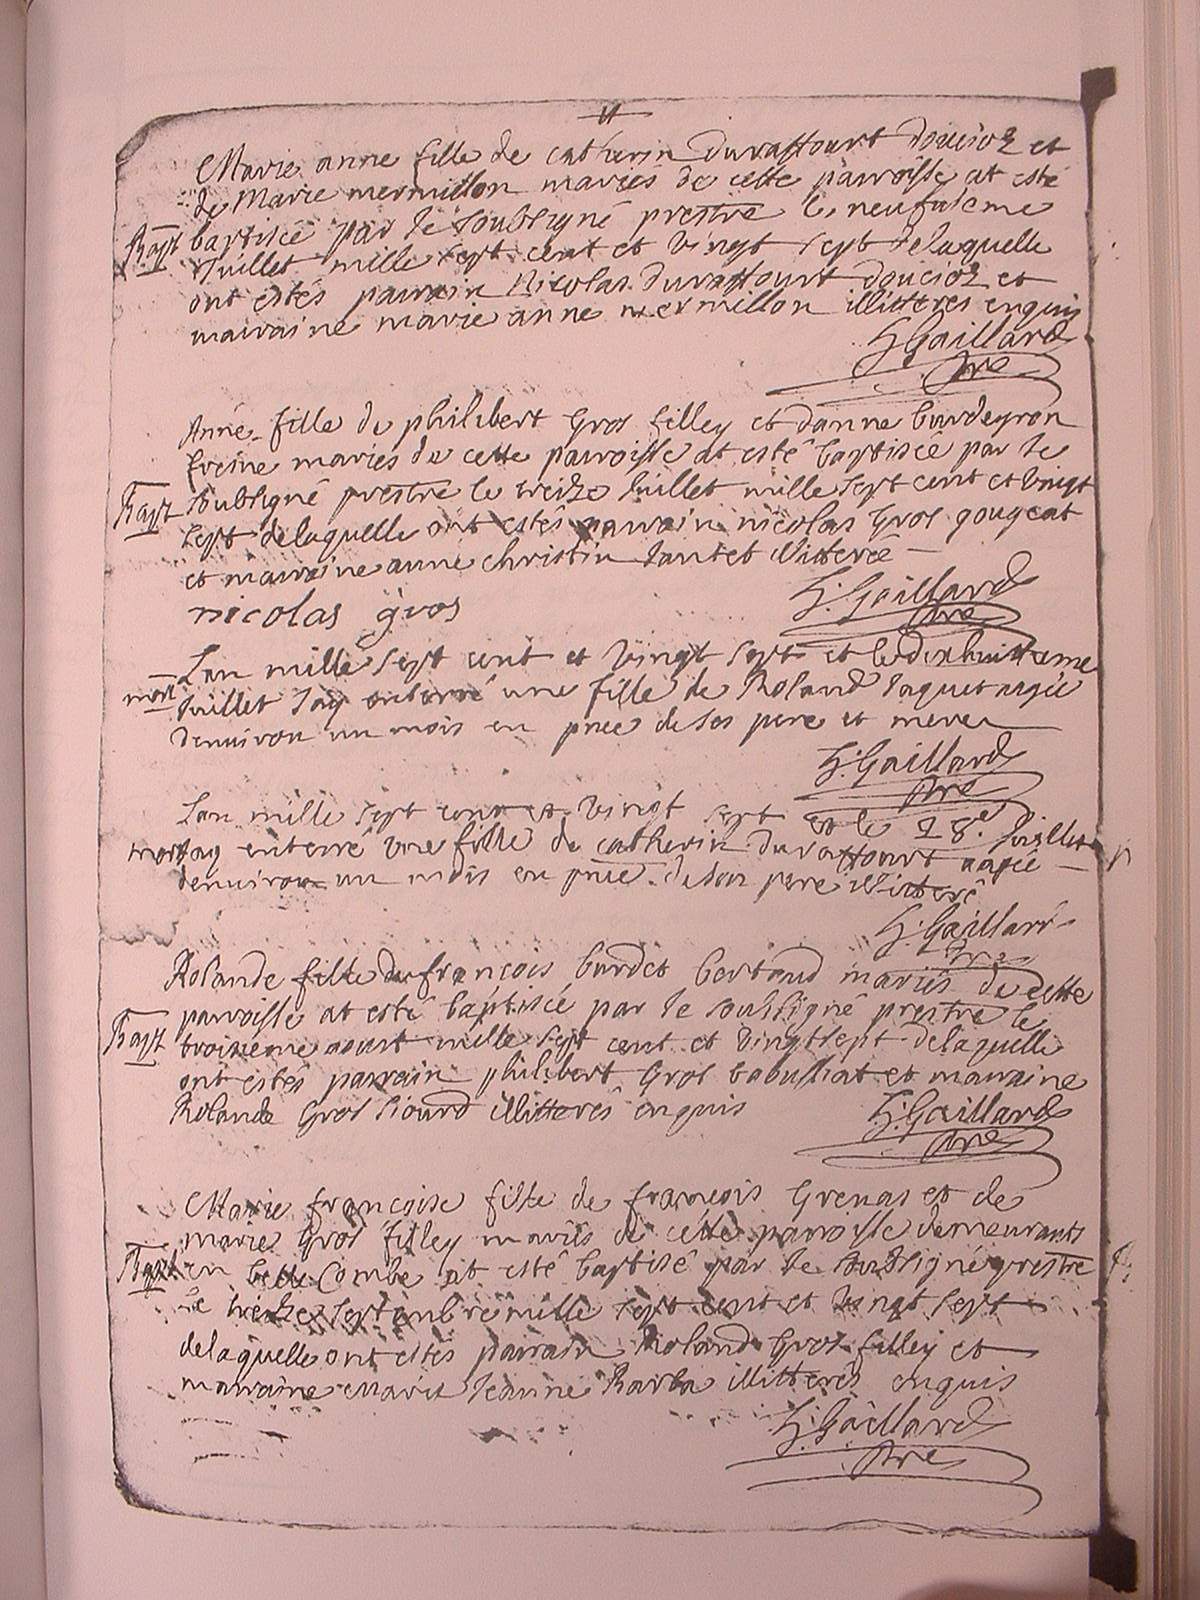 Marie anne fille de catherin Duraffourt Doucior et
de Marie mermillon mariés de cette parroisse at esté
Bapt baptisée par le soubsigné prestre le neufuieme
Juillet mille sept cent et vingt sept delaquelle
ont estés parrain Nicolas Duraffourt doucior et
marraine marie anne mermillon illitteres enquis
Gaillard
pre
Anne fille de philibert Gros filley et danne burdeyron
mariés de cette parroisse at esté baptisée par le
Bapt soubsigné prestre le treize Juillet mille sept cent et vingt
sept delaquelle ont estés parrain nicolas Gros gougeat
et marraine anne christin illitteree
nicolas gros
Gaillard
pre
Lan mille sept cent et vingt sept et le dixhuitieme
mort Juillet Jay enterré une fille de Roland Jaquet aagée
denuiron un mois en pnce de ses pere et mere
Gaillard
pre
Lan mille sept cent et vingt sept et le 18e Juillet
mort Jay enterré une fille de catherin duraffourt aagée
denuiron un mois en pnce de son pere illitteré
Gaillard
pre
Rolande fille de françois burdet bertand mariés de cette
parroisse at esté baptisée par le soubsigné prestre le
Bapt troisieme aoust mille sept cent et vingt sept delaquelle
ont estés parrain philibert Gros et marraine
Rolande Gros illitterés enquis
Gaillard
pre
Marie françoise fille de françois Grenas et de
marie Gros filley mariés de cette parroisse demeurants
Bapt en belle Combe at esté baptisé par le soubsigné prestre
le treize septenbre mille sept cent et vingt sept
delaquelle ont estés parrain Roland Gros filley et
marraine marie Jeanne Barba illitterés enquis
Gaillard
pre